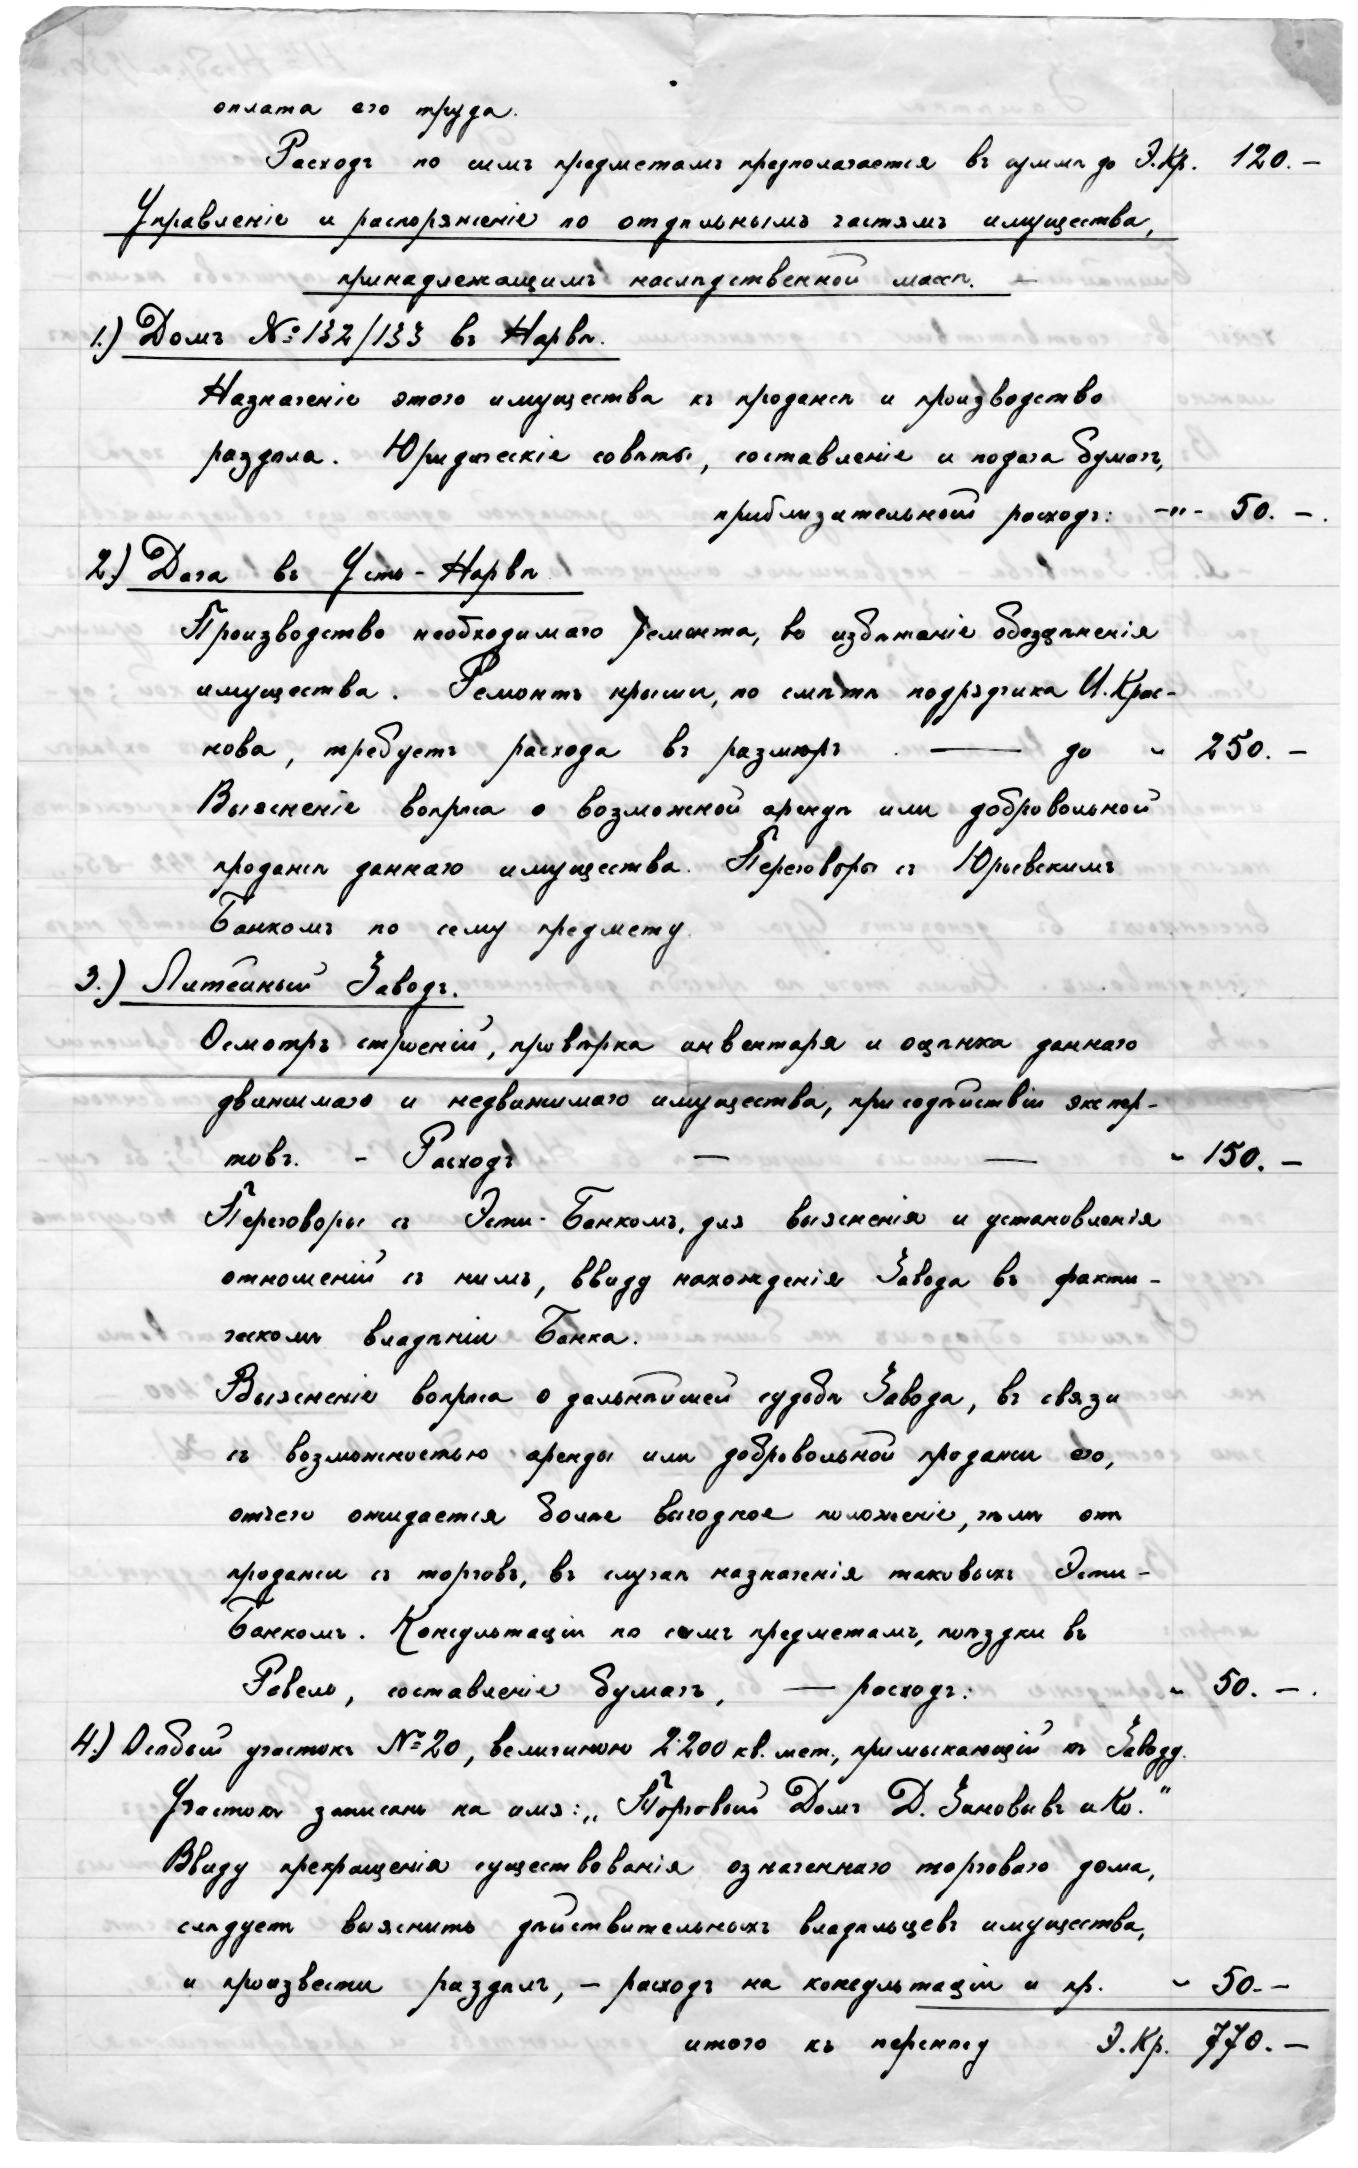 оплата его труда.
Расходъ по симъ предметамъ предполагается въ суммѣ до Э.Кр. 120.—
Управленіе и распоряженіе по отдѣльнымъ частямъ имущества,
принадлежащимъ наслѣдственной массѣ. —
1.) Домъ № 132/133 въ Нарвѣ.
Назначеніе этого имущества къ продажѣ и производство
раздѣла. Юридическіе совѣты, составленіе и подача бумагъ,
приблизательный расходъ: —"- 50. —.
2.) Дача въ Усть-Нарвѣ
Производство необходимаго ремонта, во избѣжаніе обезцѣненія
имущества. Ремонтъ крыши, по смѣтѣ подрядчика И. Крас-
нова, требуетъ расхода въ размѣрѣ . —— до " 250. —
Выясненіе вопроса о возможной арендѣ или добровольной
продажѣ даннаго имущества. Переговоры съ Юрьевскимъ
Банкомъ по сему предмету.
3.) Литейный Заводъ.
Осмотръ строеній, провѣрка инвентаря и оцѣнка даннаго
движимаго и недвижимаго имущества, при содѣйствіи экспер-
товъ. - Расходъ — — " 150. —
Переговоры съ Эсти-Банкомъ, для выясненія и установленія
отношеній съ нимъ, ввиду нахожденія Завода въ факти-
ческомъ владѣніи Банка.
Выясненіе вопроса о дальнѣйшей судьбѣ Завода, въ связи
съ возможностью аренды или добровольной продажи его,
отчего ожидается болѣе выгодное положеніе, чѣмъ отъ
продажи съ торговъ, въ случаѣ назначенія таковыхъ Эсти-
Банкомъ. Консультаціи по симъ предметамъ, поѣздки въ
Ревель, составленіе бумагъ, — расходъ: " 50. —.
4.) Особый участокъ № 20, величиною 2200 кв. мет., примыкающій къ Заводу.
Участокъ записанъ на имя: „Торговый Домъ Д. Зиновьевъ и Ко."
Ввиду прекращенія существованія означеннаго торговаго дома,
слѣдуетъ выяснить дѣйствительныхъ владѣльцевъ имущества,
и произвести раздѣлъ, — расходъ на консультаціи и пр. " 50. —
итого къ переносу Э.Кр. 770. —